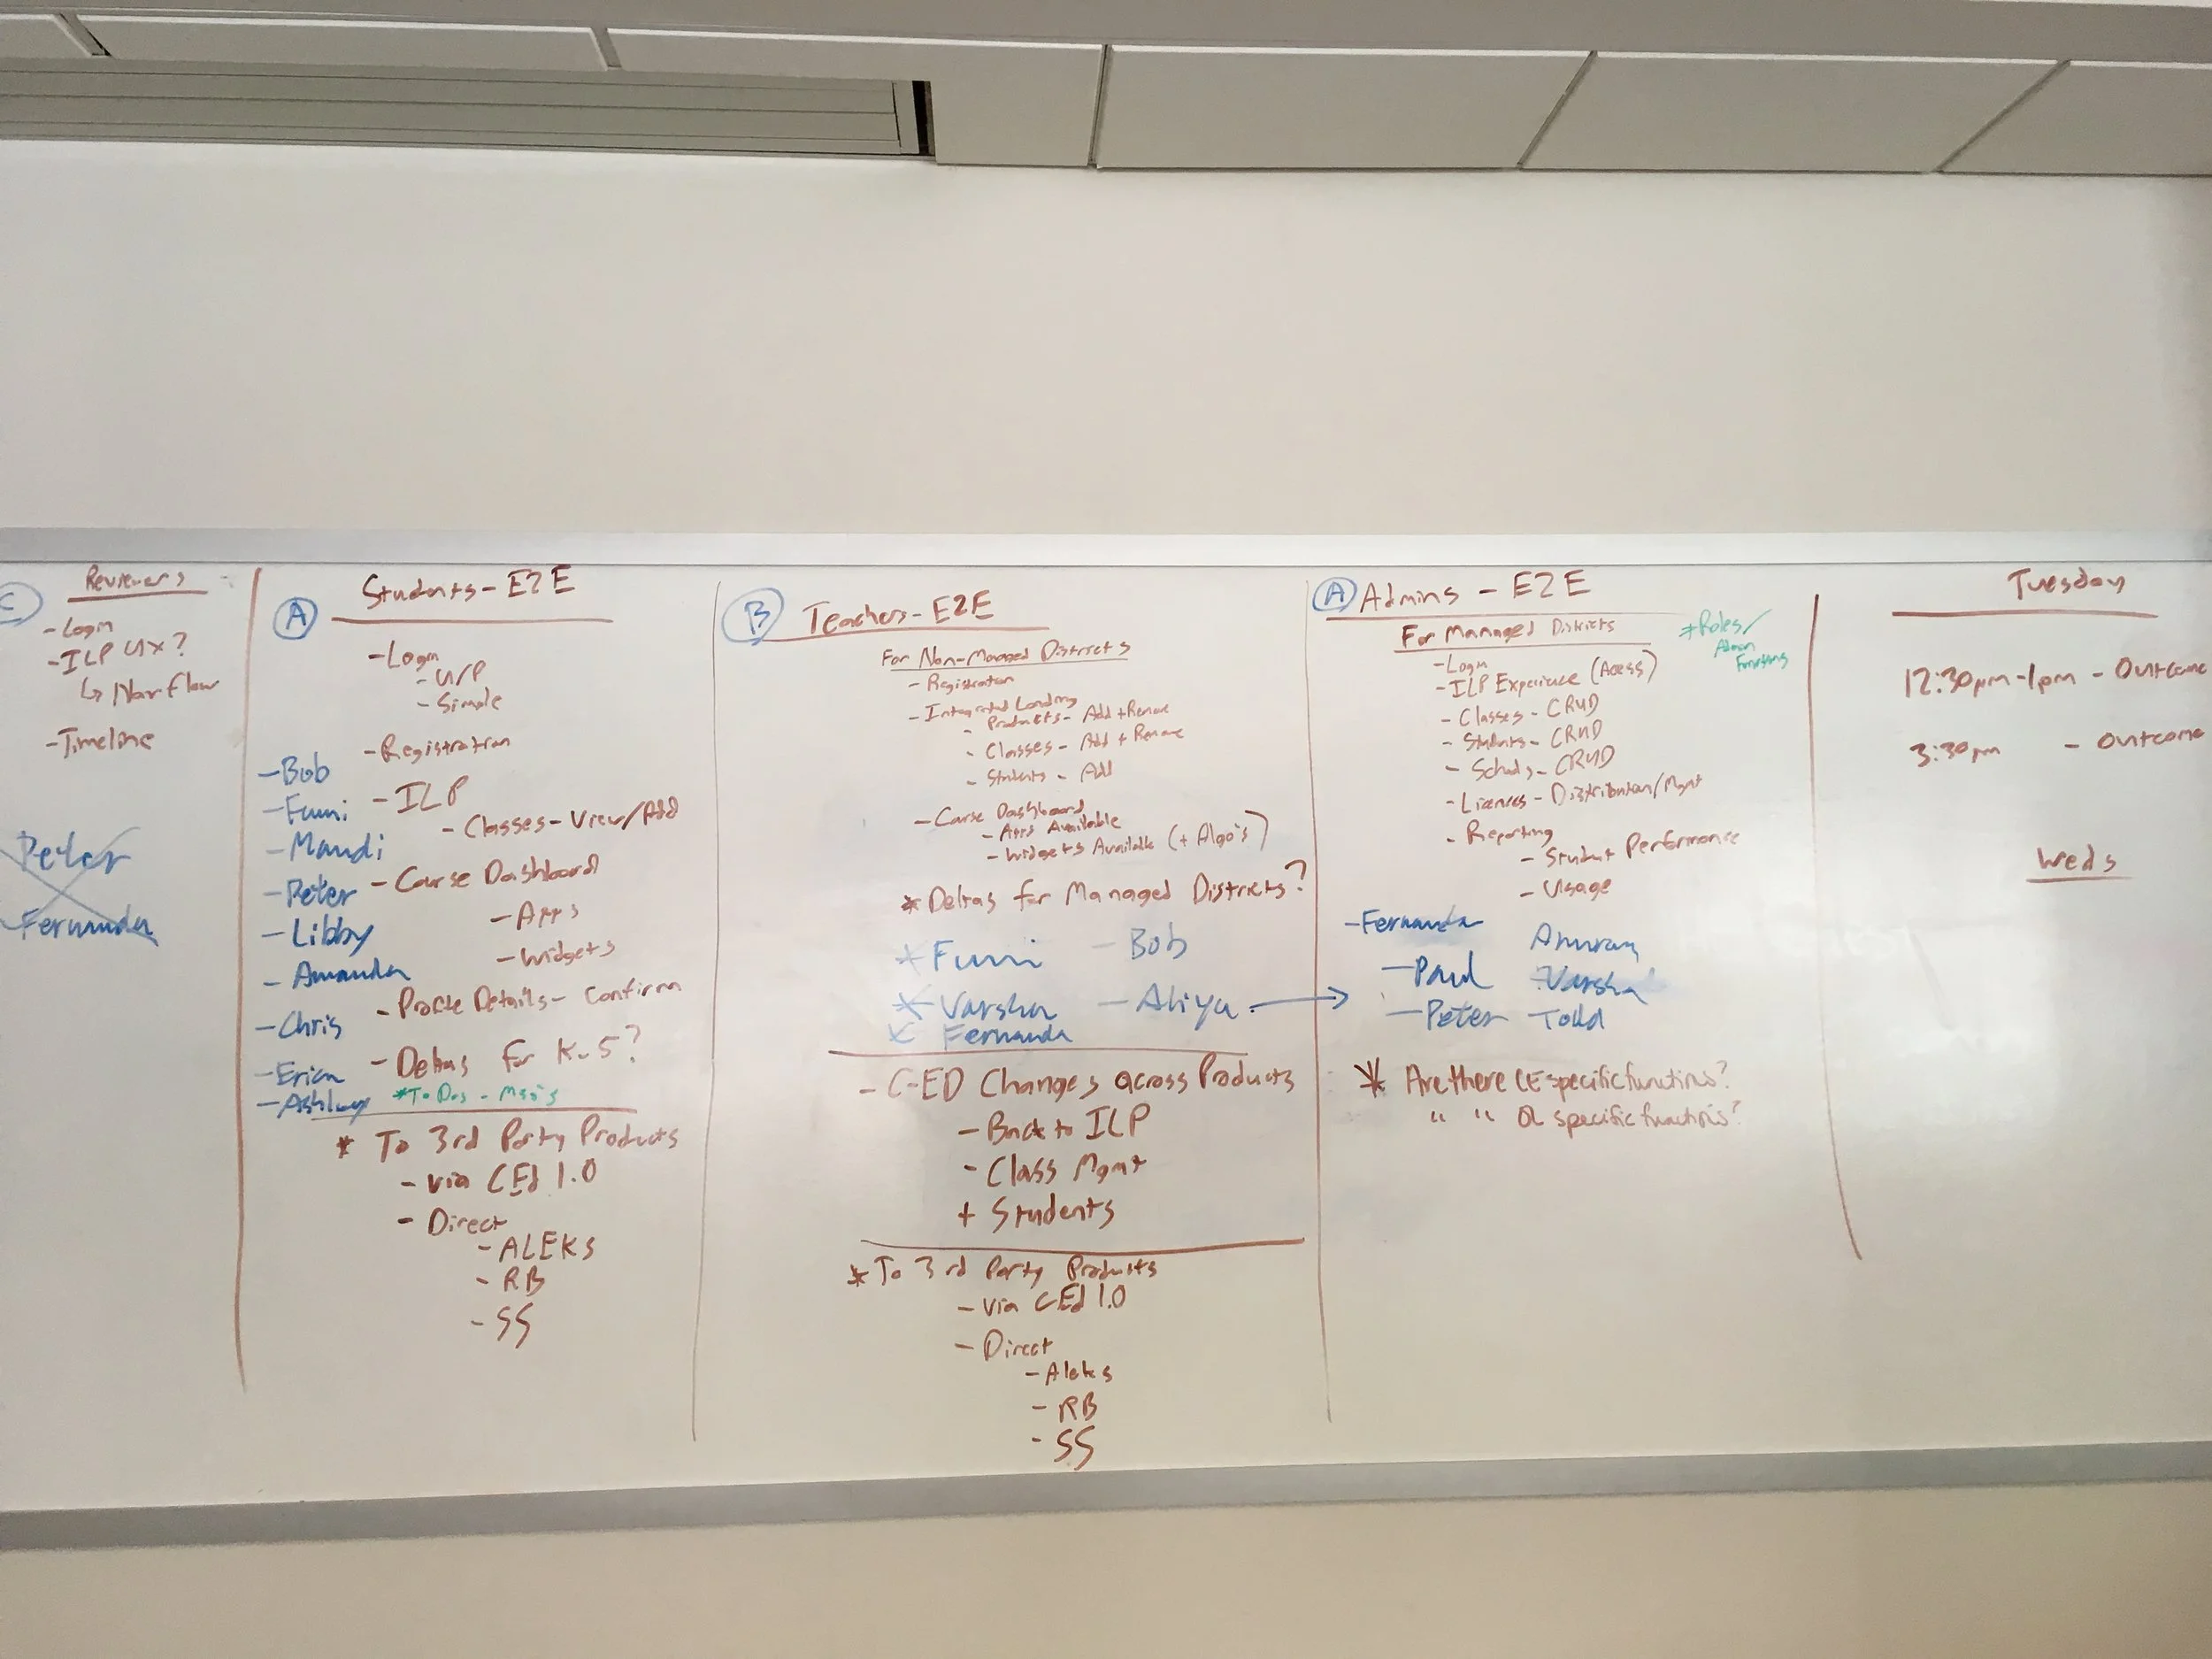 C
Reviewers
- Login
- ILP UX?
↳ Nav flow
- Timeline
Peter
- Fernanda
A
Students - E2E
- Login
- U/P
- Simple
- Registration
- ILP
- Classes - View/Add
- Course Dashboard
- Apps
- Widgets
- Profile Details - Confirm
- Deltas for K-5?
* To Dos - Msg's
- Bob
- Fumi
- Mandi
- Peter
- Libby
- Amanda
- Chris
- Erica
- Ashley
* To 3rd Party Products
- via CEd 1.0
- Direct
- ALEKS
- RB
- SS
B
Teachers - E2E
For Non-Managed Districts
- Registration
- Integrated Landing
- Products - Add + Remove
- Classes - Add + Remove
- Students - Add
- Course Dashboard
- Apps Available
- Widgets Available (+ Algo's)
* Deltas for Managed Districts?
* Fumi - Bob
* Varsha - Aliya →
* Fernanda
- C-ED Changes across Products
- Back to ILP
- Class Mgmt
+ Students
* To 3rd Party Products
- via CEd 1.0
- Direct
- Aleks
- RB
- SS
A
Admins - E2E
For Managed Districts
* Roles/
Admin
Functions
- Login
- ILP Experience (Access)
- Classes - CRUD
- Students - CRUD
- Schools - CRUD
- Licenses - Distribution/Mgmt
- Reporting
- Student Performance
- Usage
- Fernanda Anurag
- Paul Varsha
- Peter Todd
* Are there CE specific functions?
" " OL specific functions?
Tuesday
12:30pm-1pm - Outcome
3:30pm - Outcome
Weds